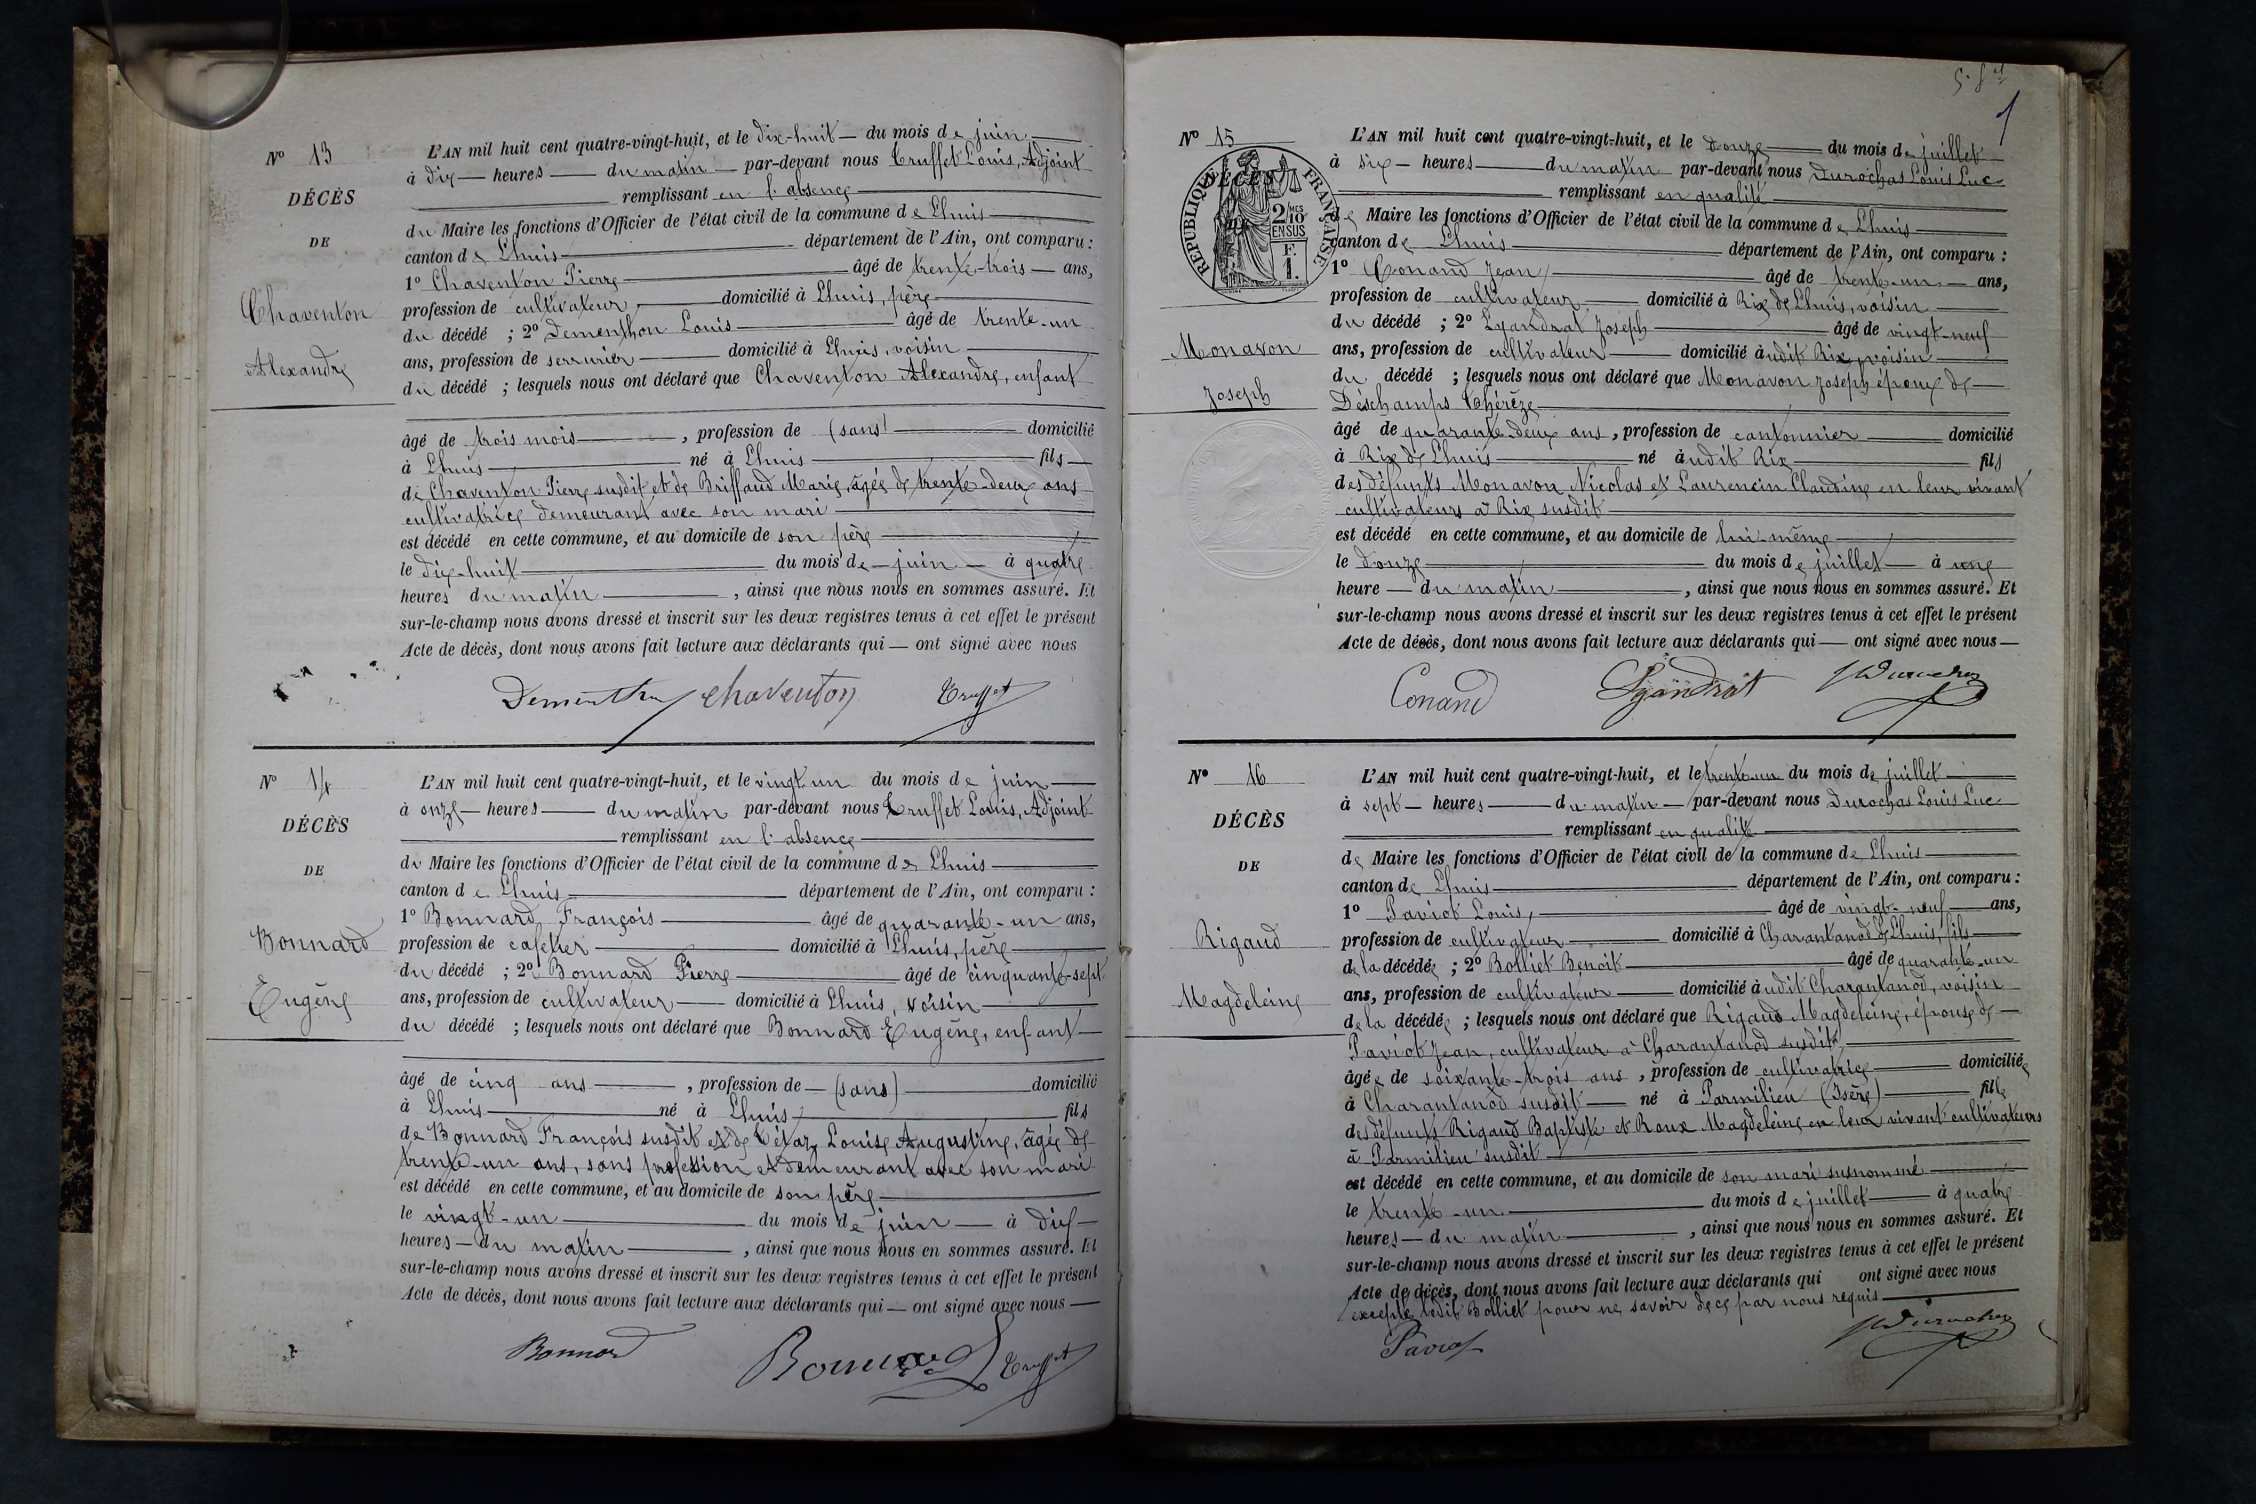 N° 13
DÉCÈS
DE
Chaventon
Alexandre
L'AN mil huit cent quatre-vingt-huit, et le dix-huit du mois de juin
à dix heures du matin par-devant nous Truffet Louis, Adjoint
remplissant en l'absence
du Maire les fonctions d'Officier de l'état civil de la commune de Lhuis
canton de Lhuis département de l'Ain, ont comparu :
1° Chaventon Pierre âgé de trente-trois ans,
profession de cultivateur domicilié à Lhuis, père
du décédé ; 2° Dementhon Louis âgé de trente-un
ans, profession de serrurier domicilié à Lhuis, voisin
du décédé ; lesquels nous ont déclaré que Chaventon Alexandre, enfant
âgé de trois mois, profession de (sans) domicilié
à Lhuis né à Lhuis fils
de Chaventon Pierre susdit et de Briffaud Marie, âgée de trente-deux ans
cultivatrice demeurant avec son mari
est décédé en cette commune, et au domicile de son père
le dix-huit du mois de juin à quatre
heures du matin, ainsi que nous nous en sommes assuré. Et
sur-le-champ nous avons dressé et inscrit sur les deux registres tenus à cet effet le présent
Acte de décès, dont nous avons fait lecture aux déclarants qui ont signé avec nous
Dementhon Chaventon Truffet
N° 14
DÉCÈS
DE
Bonnard
Eugène
L'AN mil huit cent quatre-vingt-huit, et le vingt un du mois de juin
à onze heures du matin par-devant nous Truffet Louis, Adjoint
remplissant en l'absence
du Maire les fonctions d'Officier de l'état civil de la commune de Lhuis
canton de Lhuis département de l'Ain, ont comparu :
1° Bonnard François âgé de quarante-un ans,
profession de cafetier domicilié à Lhuis, père
du décédé ; 2° Bonnard Pierre âgé de cinquante-sept
ans, profession de cultivateur domicilié à Lhuis, voisin
du décédé ; lesquels nous ont déclaré que Bonnard Eugène, enfant
âgé de cinq ans, profession de (sans) domicilié
à Lhuis né à Lhuis fils
de Bonnard François susdit et de Louise Augustine, âgée de
trente-un ans, sans profession et demeurant avec son mari
est décédé en cette commune, et au domicile de son père
le vingt-un du mois de juin à dix
heures du matin, ainsi que nous nous en sommes assuré. Et
sur-le-champ nous avons dressé et inscrit sur les deux registres tenus à cet effet le présent
Acte de décès, dont nous avons fait lecture aux déclarants qui ont signé avec nous
Bonnard Bonnard Truffet
1
N° 15
DÉCÈS
RÉPUBLIQUE FRANÇAISE
2/10 MES
EN SUS
F.
1.
Monavon
Joseph
L'AN mil huit cent quatre-vingt-huit, et le douze du mois de juillet
à six heures du matin par-devant nous Durochas Louis Luc
remplissant en qualité
de Maire les fonctions d'Officier de l'état civil de la commune de Lhuis
canton de Lhuis département de l'Ain, ont comparu :
1° Conand Jean âgé de trente-un ans,
profession de cultivateur domicilié à Rix de Lhuis, voisin
du décédé ; 2° Lyandrat Joseph âgé de vingt-neuf
ans, profession de cultivateur domicilié audit Rix, voisin
du décédé ; lesquels nous ont déclaré que Monavon Joseph époux de
Déschamps Thérèze
âgé de quarante-deux ans, profession de cantonnier domicilié
à Rix de Lhuis né audit Rix fils
des défunts Monavon Nicolas et Laurencin Claudine en leur vivant
cultivateurs à Rix susdit
est décédé en cette commune, et au domicile de lui-même
le douze du mois de juillet à une
heure du matin, ainsi que nous nous en sommes assuré. Et
sur-le-champ nous avons dressé et inscrit sur les deux registres tenus à cet effet le présent
Acte de décès, dont nous avons fait lecture aux déclarants qui ont signé avec nous
Conand Lyandrat Durochas
N° 16
DÉCÈS
DE
Rigaud
Magdeleine
L'AN mil huit cent quatre-vingt-huit, et le trente-un du mois de juillet
à sept heures du matin par-devant nous Durochas Louis Luc
remplissant en qualité
de Maire les fonctions d'Officier de l'état civil de la commune de Lhuis
canton de Lhuis département de l'Ain, ont comparu :
1° Paviot Louis, âgé de vingt-neuf ans,
profession de cultivateur domicilié à Charantanod de Lhuis, fils
de la décédée ; 2° Bolliet Benoit âgé de quarante-un
ans, profession de cultivateur domicilié audit Charantanod, voisin
de la décédée ; lesquels nous ont déclaré que Rigaud Magdeleine, épouse de
Paviot Jean, cultivateur à Charantanod susdit,
âgée de soixante-trois ans, profession de cultivatrice domiciliée
à Charantanod susdit né à Parmilieu (Isère) fille
des défunts Rigaud Baptiste et Roux Magdeleine en leur vivant cultivateurs
à Parmilieu susdit
est décédé en cette commune, et au domicile de son mari susnommé
le trente-un du mois de juillet à quatre
heures du matin, ainsi que nous nous en sommes assuré. Et
sur-le-champ nous avons dressé et inscrit sur les deux registres tenus à cet effet le présent
Acte de décès, dont nous avons fait lecture aux déclarants qui ont signé avec nous
excepté ledit Bolliet pour ne savoir de ce par nous requis
Paviot Durochas